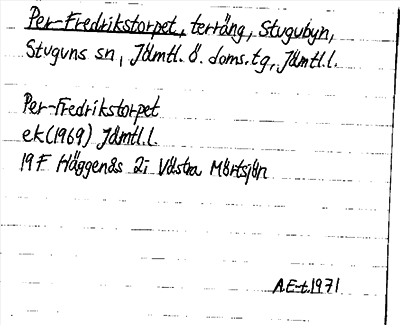 Per-Fredrikstorpet, terräng, Stugubyn,
Stuguns sn, Jämtl. ö. doms.tg, Jämtl.l.
Per-Fredrikstorpet
ek(1969) Jämtl.l.
19F Häggenås 2i Västra Mörtsjön
A.E-t.1971